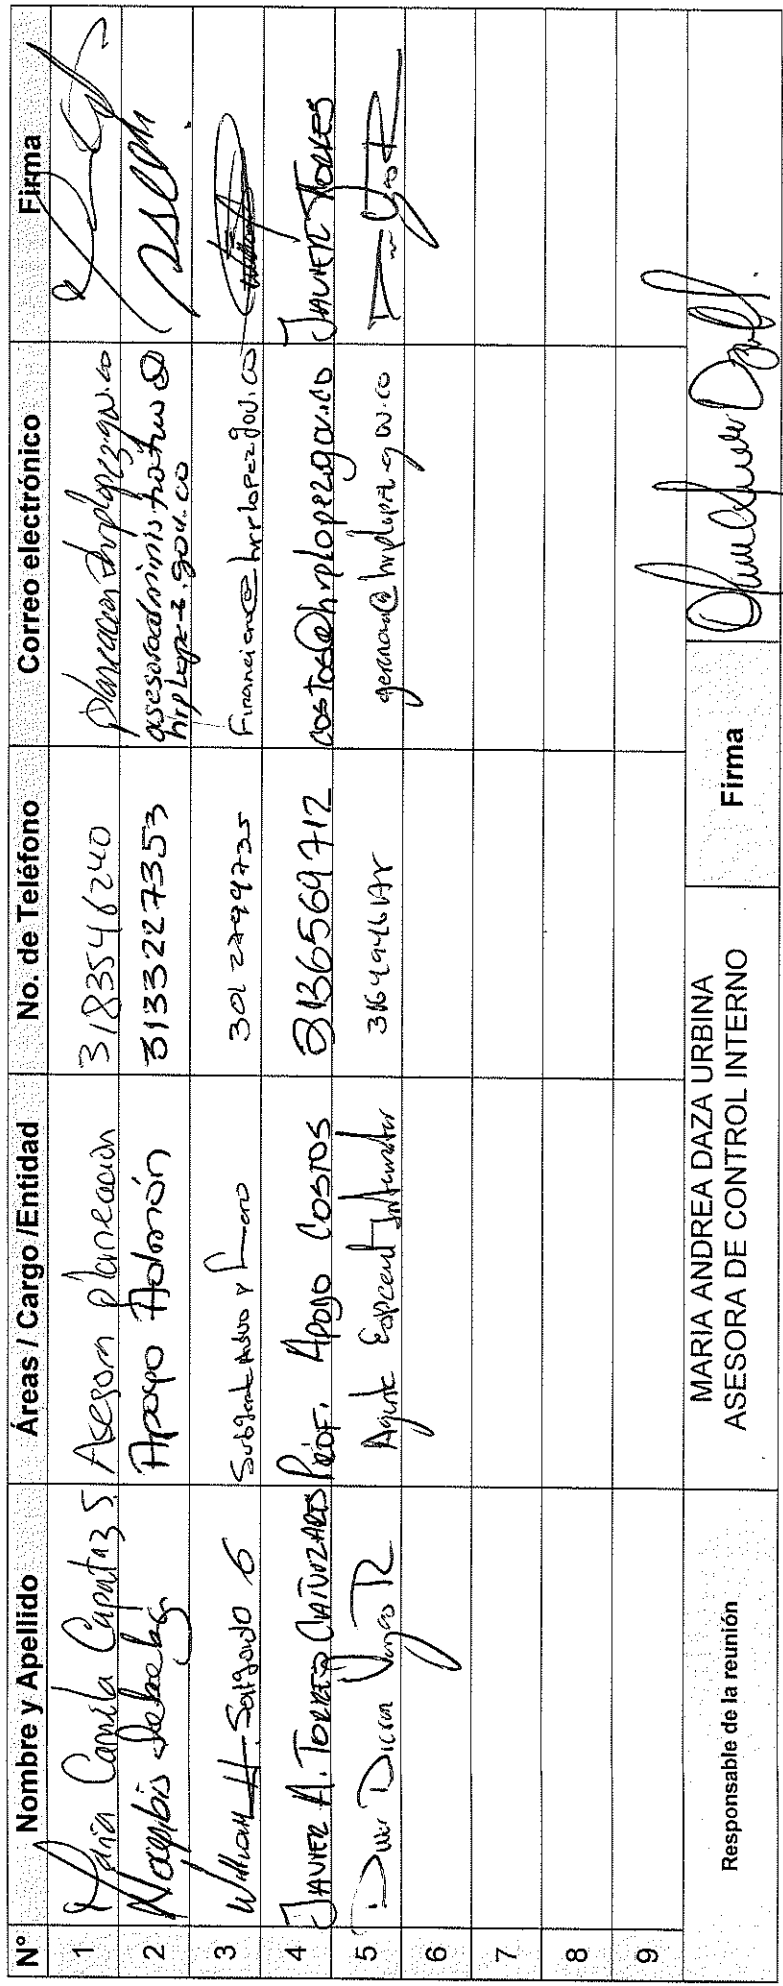 N° Nombre y Apellido Áreas / Cargo /Entidad No. de Teléfono Correo electrónico Firma
1 Maria Camila Capataz S. Asesora planeacion 3183546240
2 Apoyo Admón 3133227353 asesoradministrativo@
hrplopez.gov.co
3 William H. Salgado G 301 2799725 Financiera@hrplopez.gov.co
4 JAVIER A. TORRES CAÑIZARES PROF. APOYO COSTOS 3136569712 costos@hrplopez.gov.co JAVIER TORRES
5 Agente Especial Interventor gerencia@hrplopez.gov.co
6
7
8
9
Responsable de la reunión MARIA ANDREA DAZA URBINA
ASESORA DE CONTROL INTERNO Firma